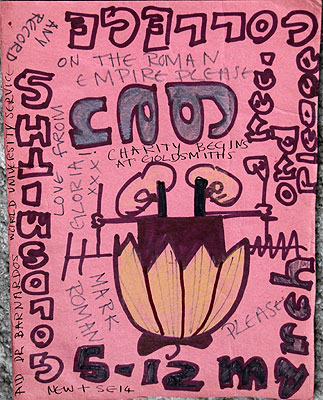 COLLEGE
ANY
RECORD
ON THE ROMAN
EMPIRE PLEASE
rag
CHARITY BEGINS
AT GOLDSMITHS
LOVE FROM
GLORIA
XXX!
GOLDSMITHS
AID DR BARNARDOS WORLD UNIVERSITY SERVICE
MARK
ROMAN
PLEASE
5-12 march
NEW + SE14